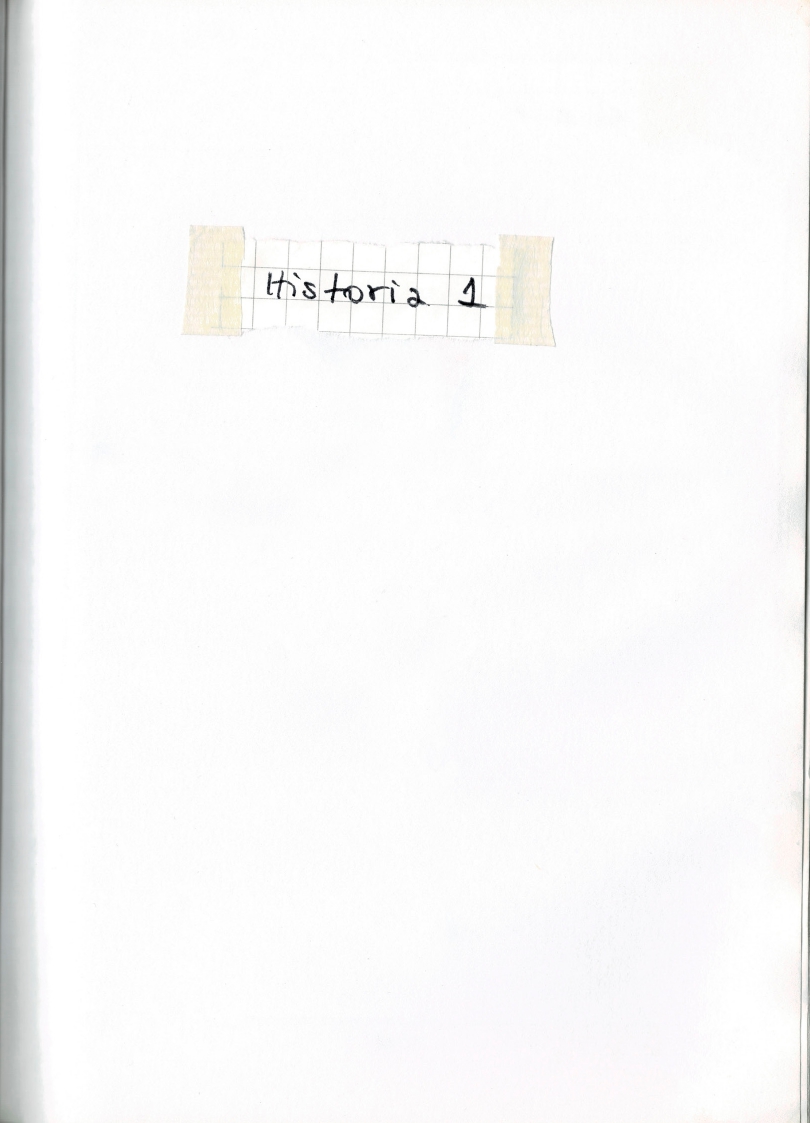 Historia 1